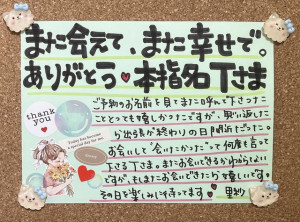 また会えて、また幸せで。
ありがとう♥本指名Tさま
ご予約のお名前を見てまた呼んで下さった
こととっても嬉しかったですが、思い返した
ら出勤が終わりの日
お会いして"会いたかった"って何度も言って
下さるTさま。またお会いできるかわからない
ですが、もしまたお会いできたら嬉しいです。
その日を楽しみに待ってます。
thank you